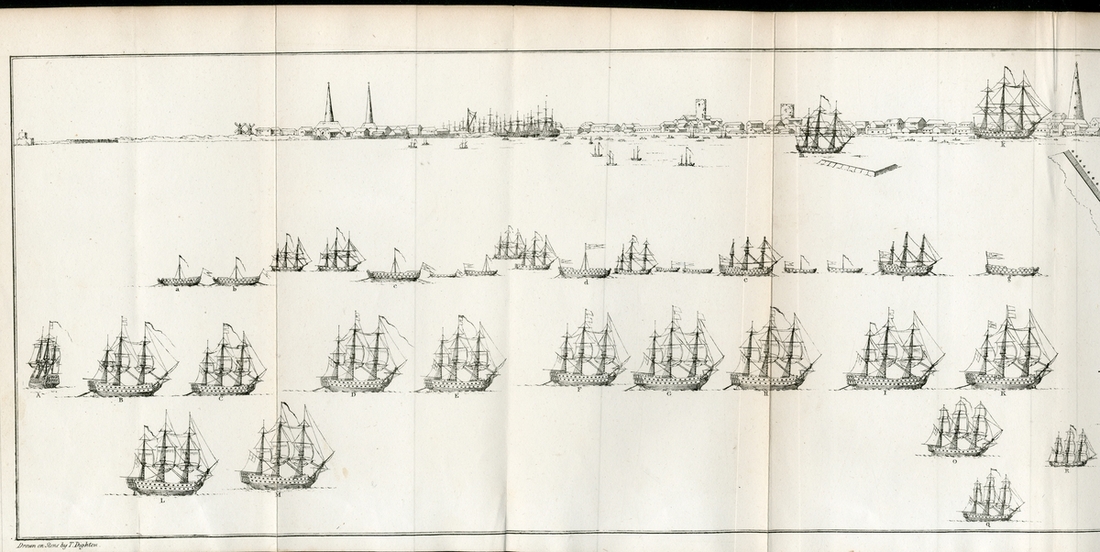 R
a b c d e f g
A B C D E F G H I K
O
L M R
q
Drawn on Stone by T. Dighton